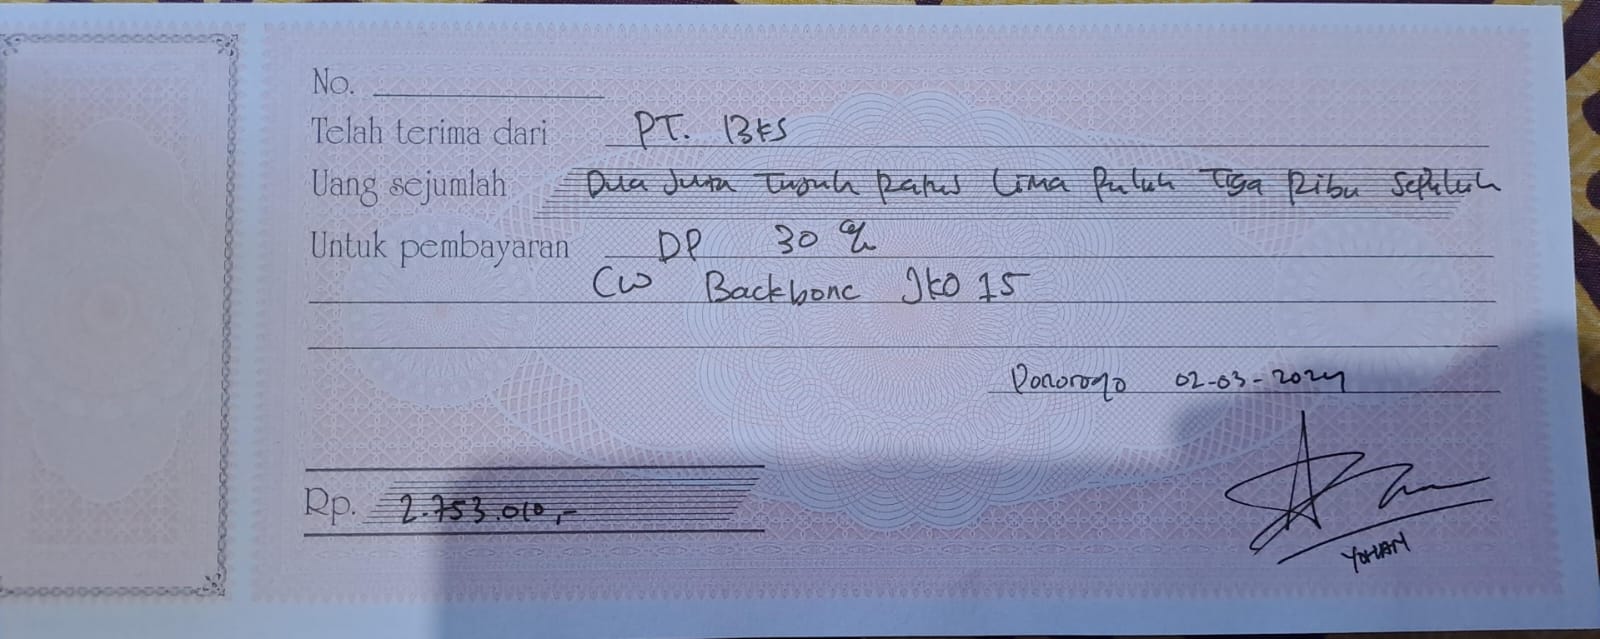 No.
Telah terima dari PT. BKS
Uang sejumlah Dua Juta Tujuh Ratus Lima Puluh Tiga Ribu Sepuluh
Untuk pembayaran DP 30 %
CW Backbone JKO 15
Ponorogo 02-03-2024
Rp. 2.753.010,-
YOHAN